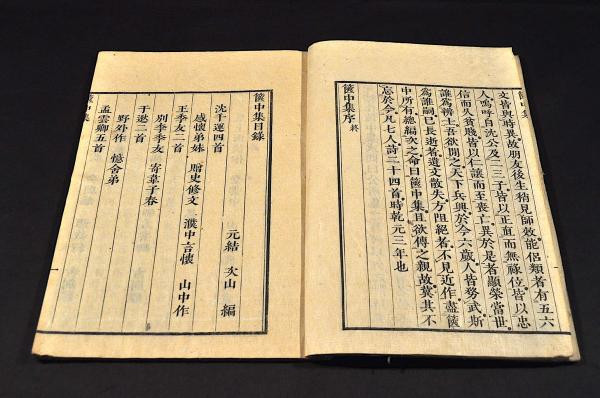 篋中集
文皆與時異故朋友後生稍見師效能侶類者有五六
人嗚呼自沈公及二三子皆以正直而無祿位皆以忠
信而久貧賤皆以仁讓而至喪亡異於是者顯榮當世
誰為辨士吾欲問之天下兵興於今六歲人皆務武斯
焉誰嗣已長逝者遺文散失方阻絕者不見近作盡篋
中所有總編次之命曰篋中集且欲傳之親故冀其不
忘於今凡七人詩二十四首時乾元三年也
篋中集序 終
篋中集目錄
元結 次山 編
沈千運四首
感懷弟妹 贈史修文 濮中言懷 山中作
王季友二首
別李季友 寄韋子春
于逖二首
野外作 憶舍弟
孟雲卿五首
篋中集